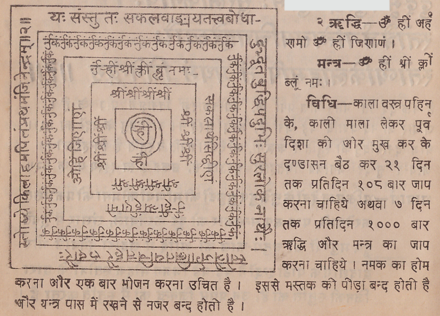 यः संस्तु तः सकलवाङ्मयतत्त्वबोधा-
दुद्भूत बुद्धिपटुभिः सुरलोक नाथैः।
स्तोत्रैर्जगत्त्रितयचित्तहरै रुदारैः
स्तोष्ये किलाहमपि तं प्रथमं जिनेन्द्रम्॥२॥
श्रीं श्रीं श्रीं श्रीं
२ ऋद्धि—ॐ ह्रीं अर्हं
णमो ॐ ह्रीं जिणाणं।
मन्त्र—ॐ ह्रीं श्रीं क्लीं
ब्लूं नमः।
विधि—काला वस्त्र पहिन
के, काली माला लेकर पूर्व
दिशा की ओर मुख कर के
दण्डासन बैठ कर २१ दिन
तक प्रतिदिन १०८ बार जाप
करना चाहिये अथवा ७ दिन
तक प्रतिदिन १००० बार
ऋद्धि और मन्त्र का जाप
करना चाहिये। नमक का होम
करना और एक बार भोजन करना उचित है। इससे मस्तक की पीड़ा बन्द होती है
और यन्त्र पास में रखने से नजर बन्द होती है।